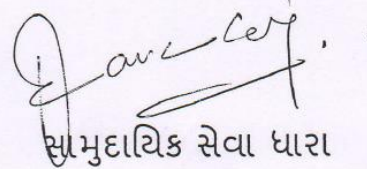 સામુદાયિક સેવા ધારા